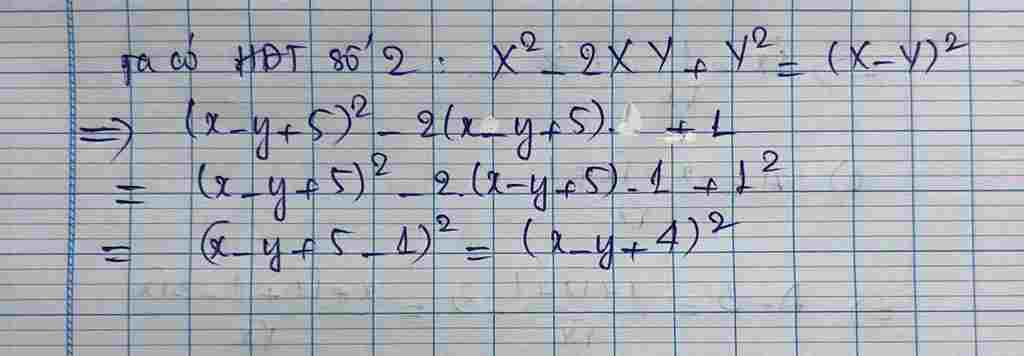 Ta có HĐT số 2 : X² - 2XY + Y² = (X-Y)²
=> (x-y+5)² - 2(x-y+5). + 1
= (x-y+5)² - 2.(x-y+5).1 + 1²
= (x-y+5-1)² = (x-y+4)²